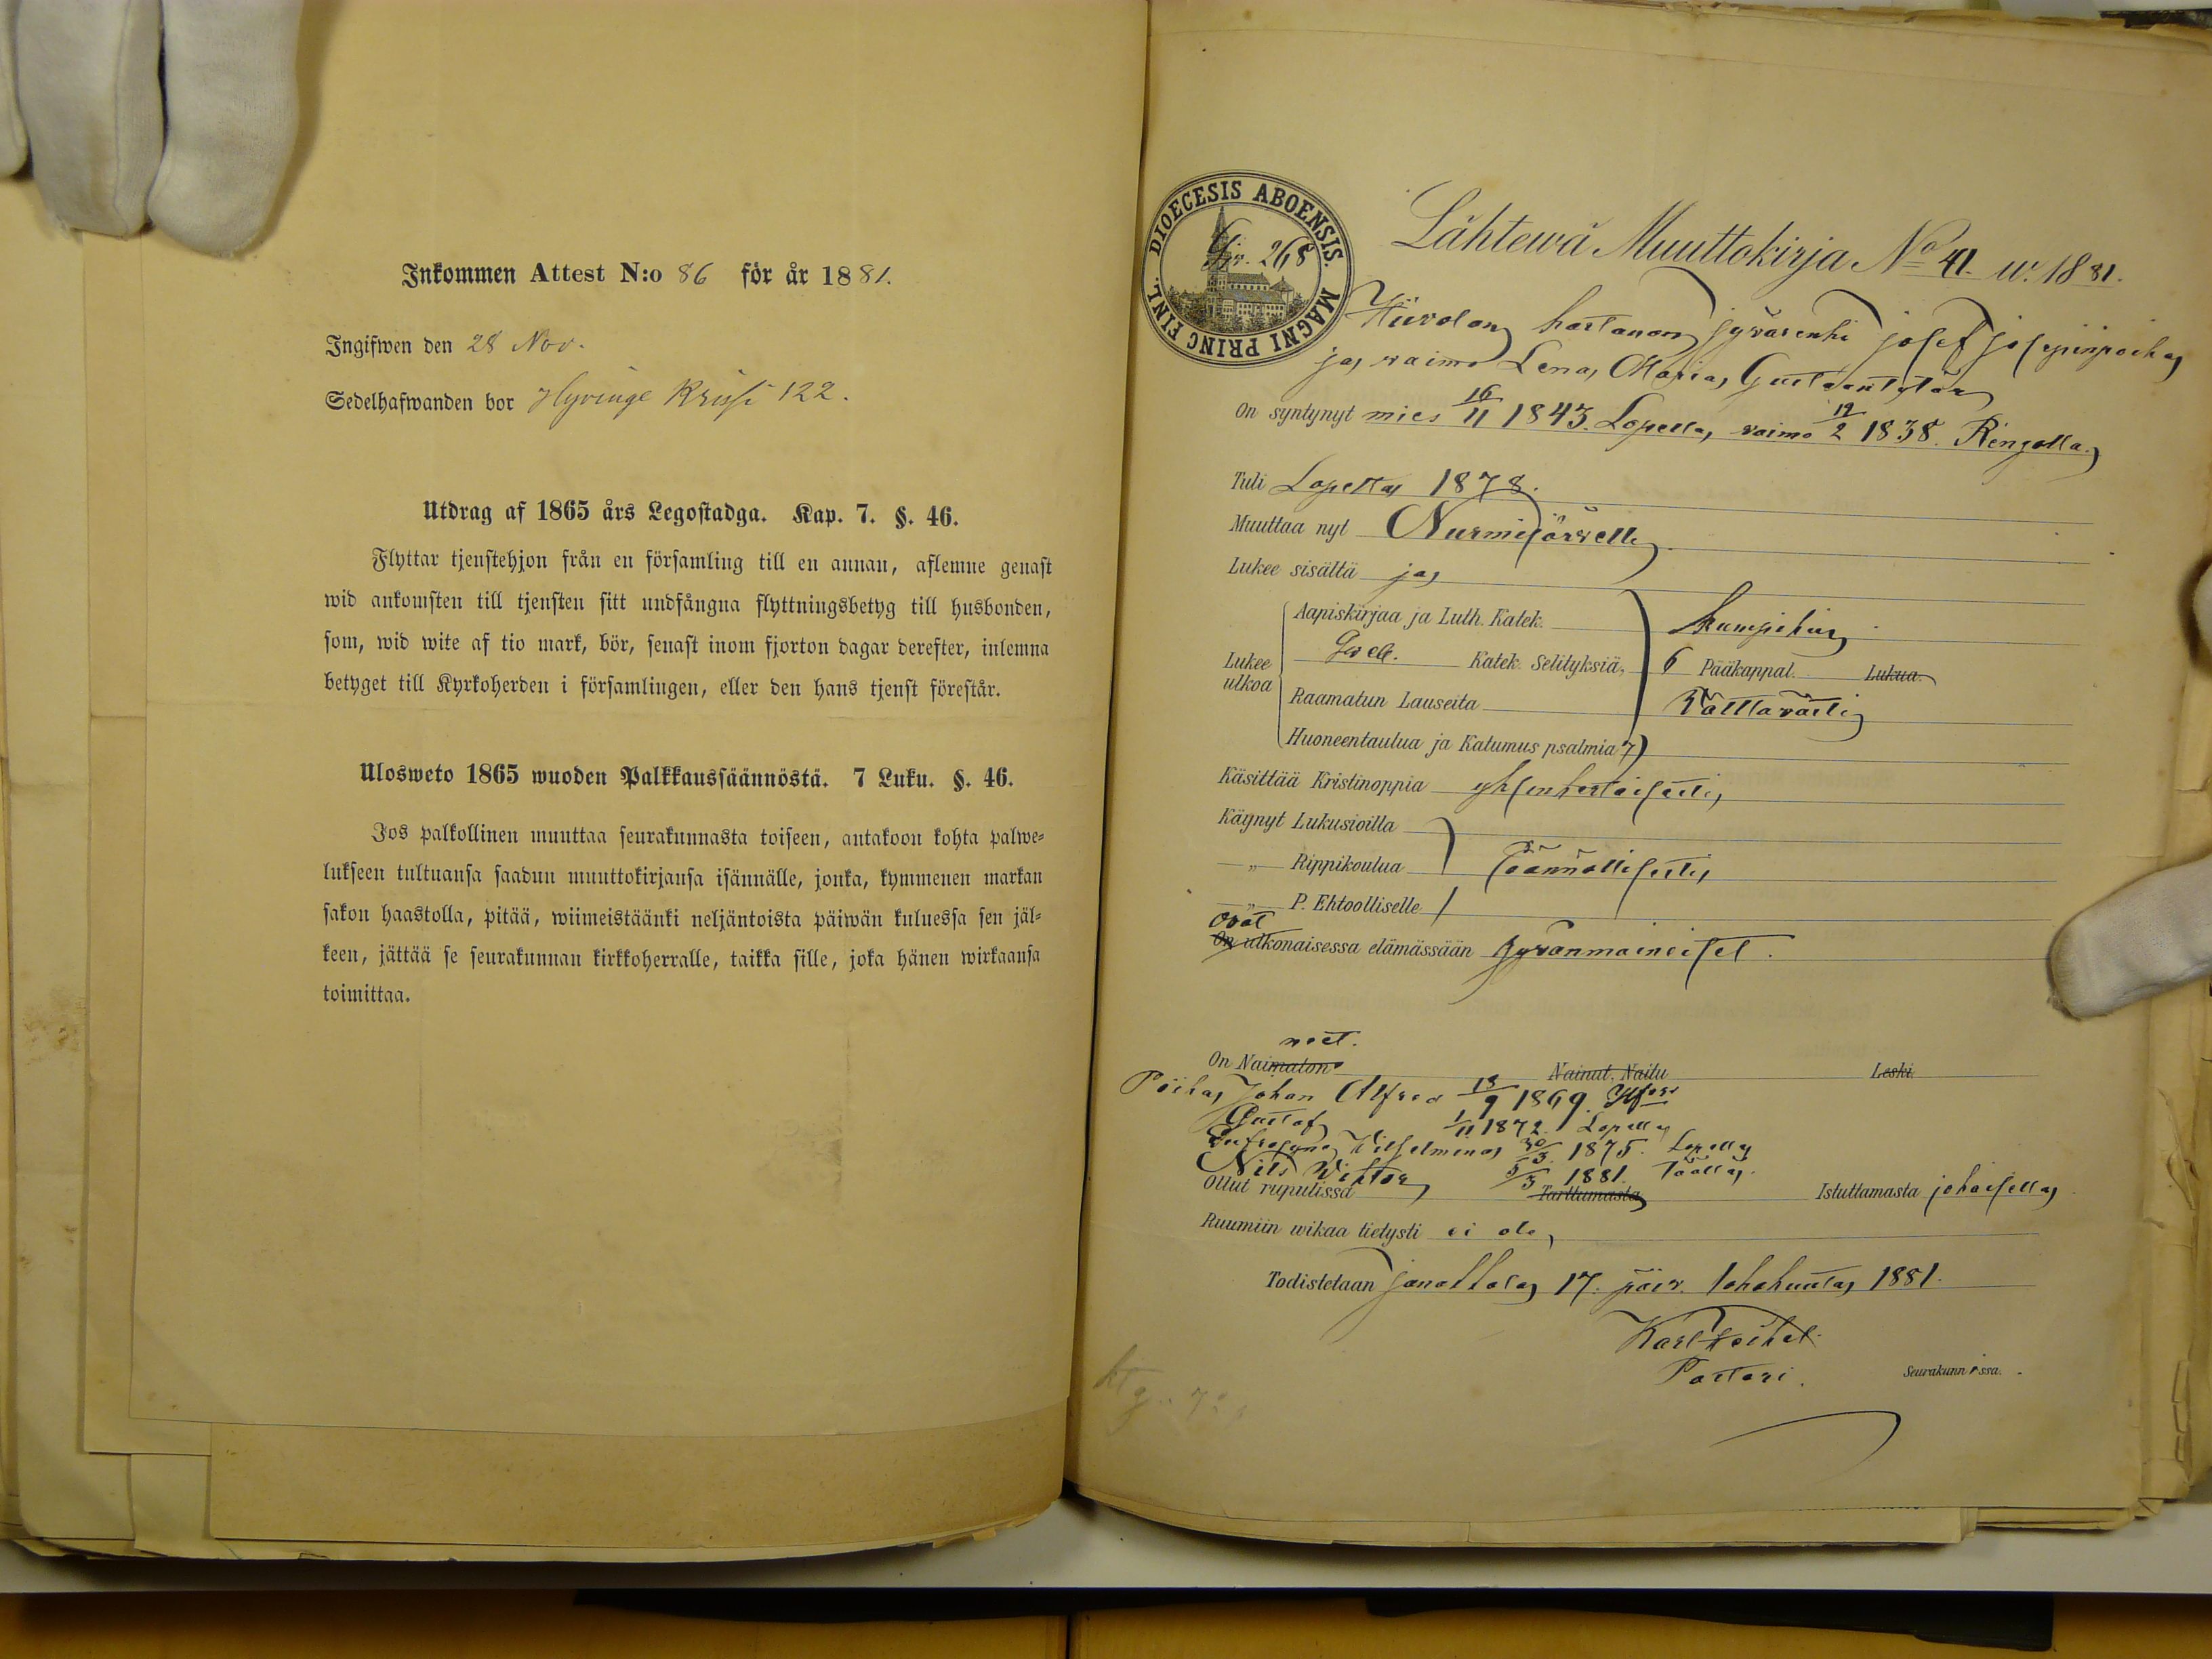 Inkommen Attest N:o 86 för år 1881.
Ingifwen den 28 Nov.
Sedelhafwanden bor Hyvinge 122.
Utdrag af 1865 års Legostadga. Kap. 7. §. 46.
Flyttar tjenstehjon från en församling till en annan, aflemne genast
wid ankomsten till tjensten sitt undfångna flyttningsbetyg till husbonden,
som, wid wite af tio mark, bör, senast inom fjorton dagar derefter, inlemna
betyget till Kyrkoherden i församlingen, eller den hans tjenst förestår.
Ulosweto 1865 wuoden Palkkaussäännöstä. 7 Luku. §. 46.
Jos palkollinen muuttaa seurakunnasta toiseen, antakoon kohta palwe-
lukseen tultuansa saadun muuttokirjansa isännälle, jonka, kymmenen markan
sakon haastolla, pitää, wiimeistäänki neljäntoista päiwän kuluessa sen jäl-
keen, jättää se seurakunnan kirkkoherralle, taikka sille, joka hänen wirkaansa
toimittaa.
DIOECESIS ABOENSIS. MAGNI PRINC FINL.
268
Lähtewä Muuttokirja No 41. w. 1881.
hartanon Josef Josepinpoika
ja waimo Lena Maria Gustaantytär
On syntynyt mies 16/11 1843. Lopella, vaimo 19/2 1838. Rengolla
Tuli Lopelta 1878.
Muuttaa nyt Nurmijärvelle
Lukee sisältä ja
Aapiskirjaa ja Luth. Katek. kumpikin
Lukee ulkoa Katek. Selityksiä, 6 Pääkappal. Lukua.
Raamatun Lauseita Välttävästi
Huoneentaulua ja Katumus psalmia 7
Käsittää Kristinoppia yksinkertaisesti
Käynyt Lukusioilla
—„— Rippikoulua säännöllisesti
—„— P. Ehtoolliselle
ovat
On ulkonaisessa elämässään hyvänmaineiset.
neet.
On Naimaton Nainut, Naitu Leski.
Poika Johan Alfred 18/9 1869. Hfors
Gustaf 1/11 1872. Lopella
Eufrosyne Vilhelmina 30/3 1875. Lopella
Nils Viktor 5/3 1881. Täällä.
Ollut rupulissa Tarttumasta Istuttamasta jokaisella
Ruumiin wikaa tietysti ei ole
Todistetaan Janakkala 17. päiv. lokakuuta 1881.
Karl
Pastori. Seurakunnissa.